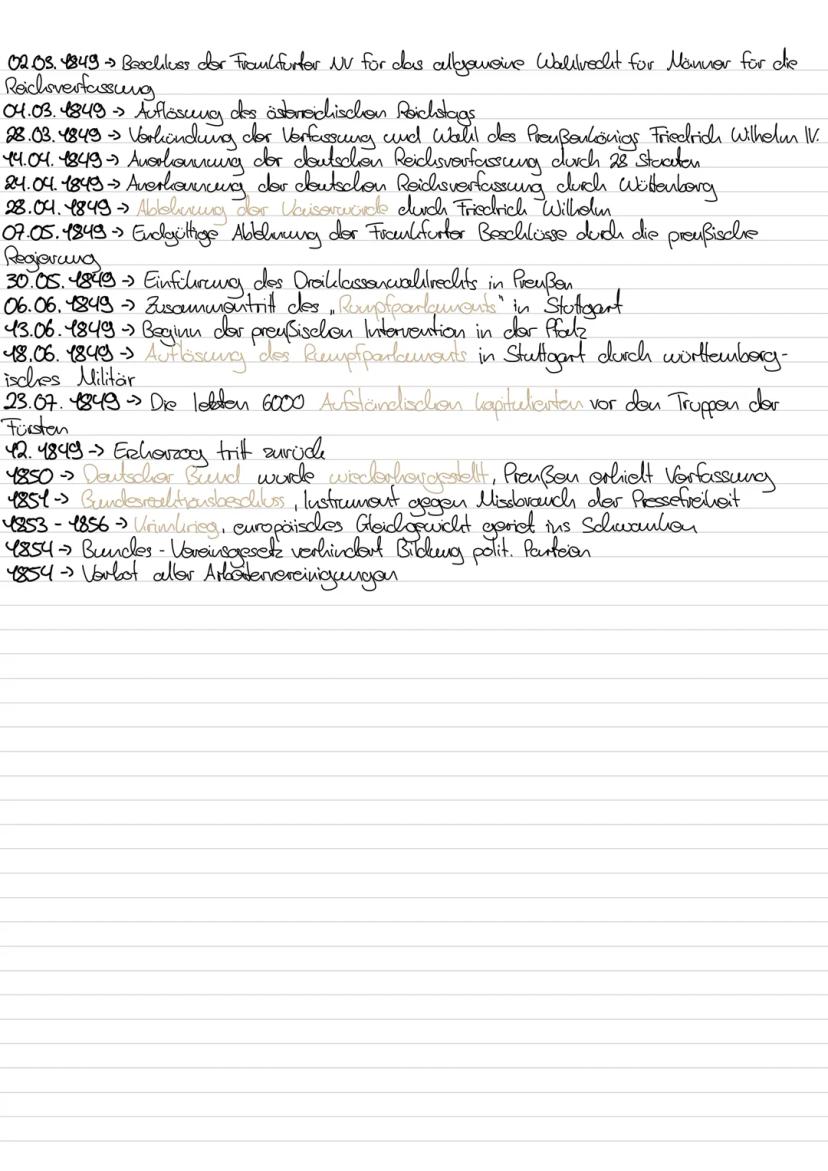 02.03.1849 → Beschluss der Frankfurter NV für das allgemeine Wahlrecht für Männer für die
Reichsverfassung
04.03.1849 → Auflösung des österreichischen Reichstags
28.03.1849 → Verkündung der Verfassung und Wahl des Preußenkönigs Friedrich Wilhelm IV.
14.04.1849 → Anerkennung der deutschen Reichsverfassung durch 28 Staaten
24.04.1849 → Anerkennung der deutschen Reichsverfassung durch Würtenberg
28.04.1849 → Ablehnung der Kaiserwürde durch Friedrich Wilhelm
07.05.1849 → Endgültige Ablehnung der Frankfurter Beschlüsse durch die preußische
Regierung
30.05.1849 → Einführung des Dreiklassenwahlrechts in Preußen
06.06.1849 → Zusammentritt des „Rumpfparlaments" in Stuttgart
13.06.1849 → Beginn der preußischen Intervention in der Pfalz
18.06.1849 → Auflösung des Rumpfparlaments in Stuttgart durch württemberg-
isches Militär
23.07.1849 → Die letzten 6000 Aufständischen kapitulierten vor den Truppen der
Fürsten
12.1849 → Erzherzog tritt zurück
1850 → Deutscher Bund wurde wiederhergestellt, Preußen erhielt Verfassung
1851 → Bundesreaktionsbeschluss, Instrument gegen Missbrauch der Pressefreiheit
1853 - 1856 → Krimkrieg, europäisches Gleichgewicht geriet ins Schwanken
1854 → Bundes-Vereinsgesetz verhindert Bildung polit. Parteien
1854 → Verbot aller Arbeitervereinigungen